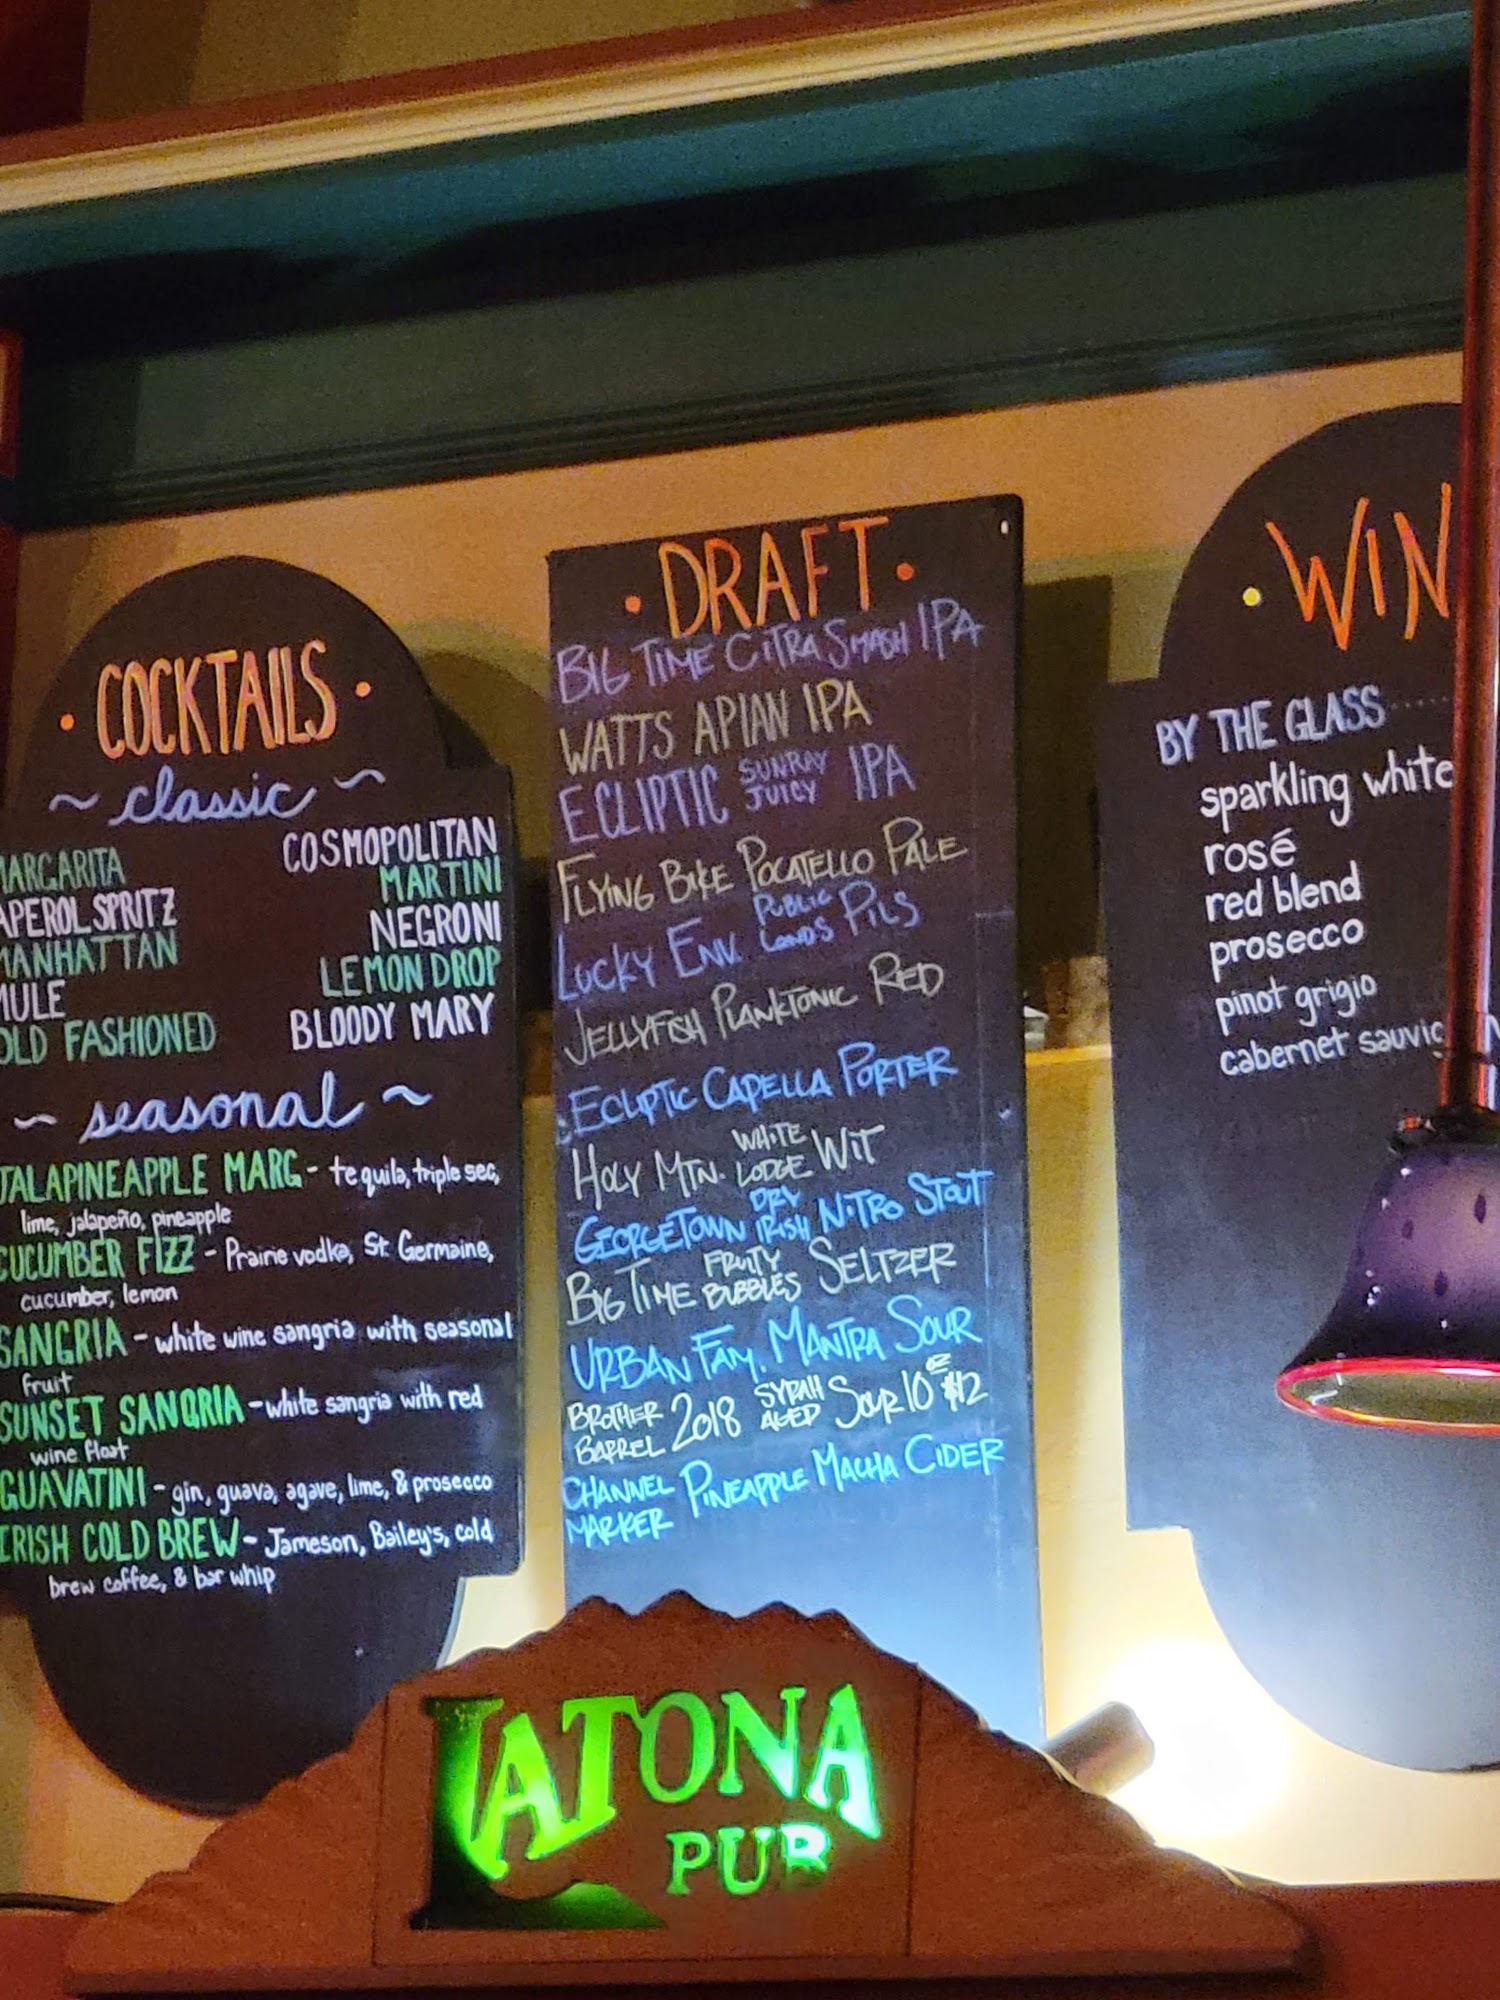 COCKTAILS
~ classic ~
MARGARITA
APEROL SPRITZ
MANHATTAN
MULE
OLD FASHIONED
COSMOPOLITAN
MARTINI
NEGRONI
LEMON DROP
BLOODY MARY
~ seasonal ~
JALAPINEAPPLE MARG - tequila, triple sec,
lime, jalapeño, pineapple
CUCUMBER FIZZ - Prairie vodka, St. Germaine,
cucumber, lemon
SANGRIA - white wine sangria with seasonal
fruit
SUNSET SANGRIA - white sangria with red
wine float
GUAVATINI - gin, guava, agave, lime, & prosecco
IRISH COLD BREW - Jameson, Bailey's, cold
brew coffee, & bar whip
• DRAFT •
BIG TIME CITRA SMASH IPA
WATTS APIAN IPA
ECLIPTIC SUNRAY JUICY IPA
FLYING BIKE POCATELLO PALE
LUCKY ENV. PUBLIC LANDS PILS
JELLYFISH PLANKTONIC RED
ECLIPTIC CAPELLA PORTER
HOLY MTN. WHITE LODGE WIT
GEORGETOWN DRY IRISH NITRO STOUT
BIG TIME FRUITY BUBBLES SELTZER
URBAN FAM. MANTRA SOUR
BROTHER BARREL 2018 SYRAH AGED SOUR 10 OZ $12
CHANNEL MARKER PINEAPPLE MACHA CIDER
• WIN
BY THE GLASS
sparkling white
rosé
red blend
prosecco
pinot grigio
cabernet sauvig
LATONA
PUB